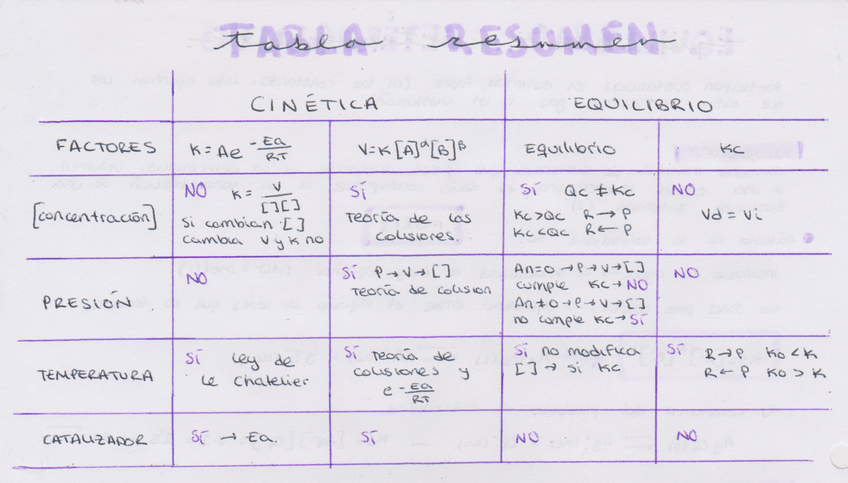 tabla resumen
CINÉTICA EQUILIBRIO
FACTORES K = Ae^-Ea/RT V=K[A]^α[B]^β Equilibrio Kc
[concentración]
NO K = V/[][]
Si cambian []
cambia V y K no
SÍ
Teoría de las
colisiones.
SÍ Qc ≠ Kc
Kc>Qc R → P
Kc<Qc R ← P
NO
Vd = Vi
PRESIÓN
NO
SÍ P→V→[]
Teoría de colisión
Δn=0→P→V→[]
cumple Kc→NO
Δn≠0→P→V→[]
no cumple Kc→SÍ
NO
TEMPERATURA
SÍ Ley de
Le Chatelier
SÍ Teoría de
colisiones y
e^-Ea/RT
SÍ no modifica
[]→ si Kc
SÍ R→P Ko<K
R←P Ko>K
CATALIZADOR SÍ → Ea. SÍ NO NO